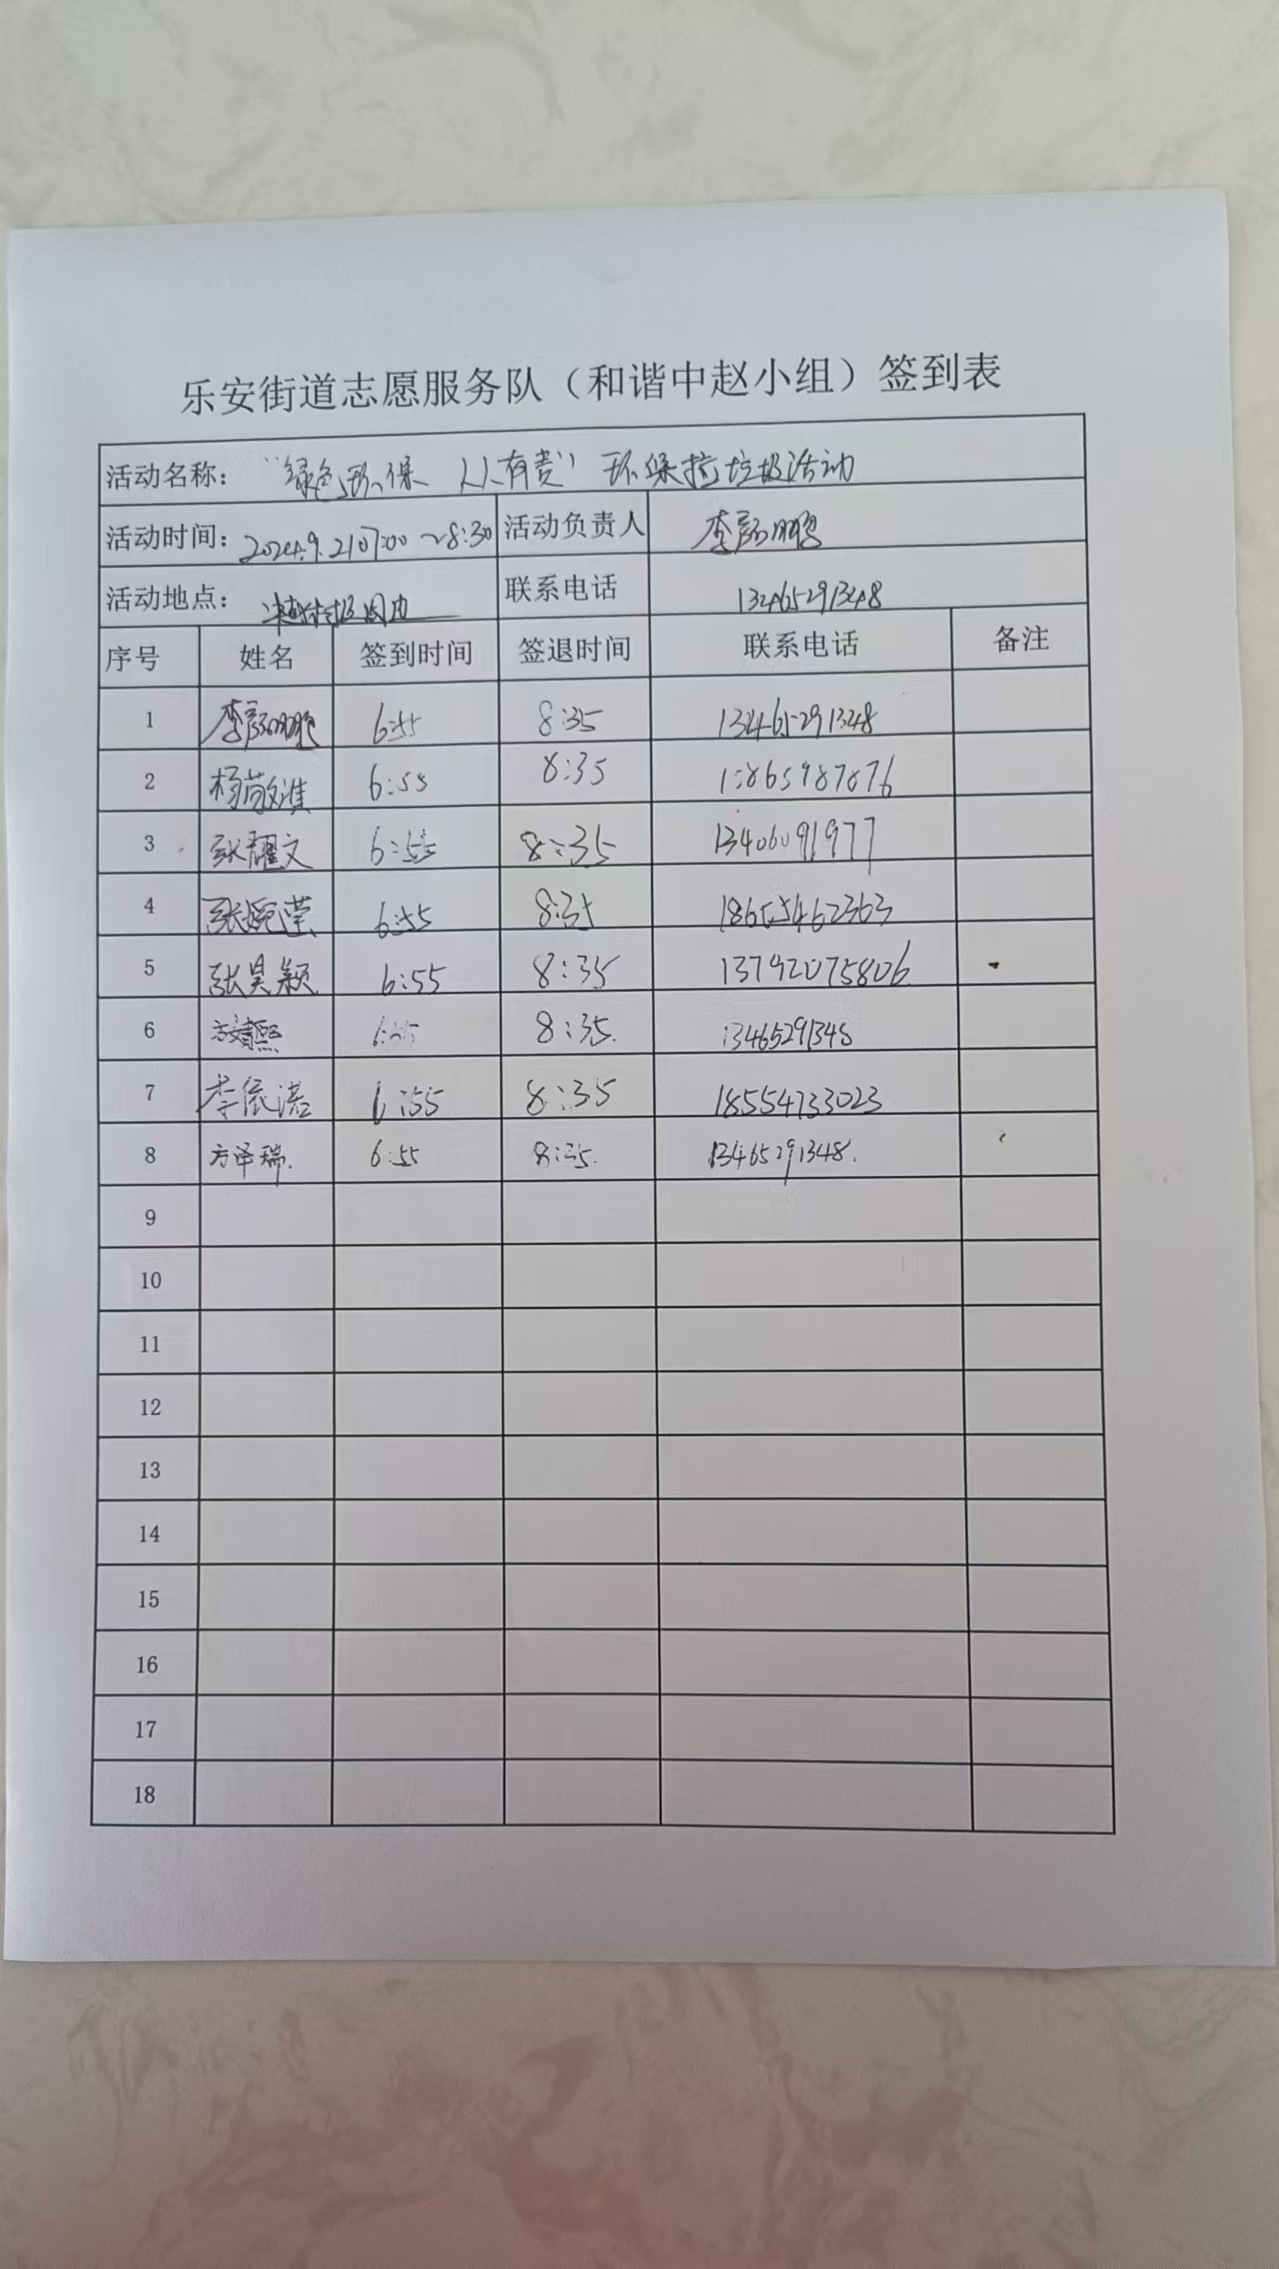 乐安街道志愿服务队（和谐中赵小组）签到表
活动名称： “绿色环保 人人有责” 环保捡垃圾活动
活动时间： 2024.9.21 07:00～8:30 活动负责人 李彭鹏
活动地点： 联系电话 13465291348
序号 姓名 签到时间 签退时间 联系电话 备注
1 李彭鹏 6:55 8:35 13465291348
2 杨敬淮 6:55 8:35
3 张耀文 6:55 8:35 13406091977
4 张婉莹 6:55 8:35 18655462363
5 张昊颖 6:55 8:35 13792075806
6 6:55 8:35 13465291348
7 李依诺 6:55 8:35 18554733023
8 方泽瑞 6:55 8:35 13465291348
9
10
11
12
13
14
15
16
17
18